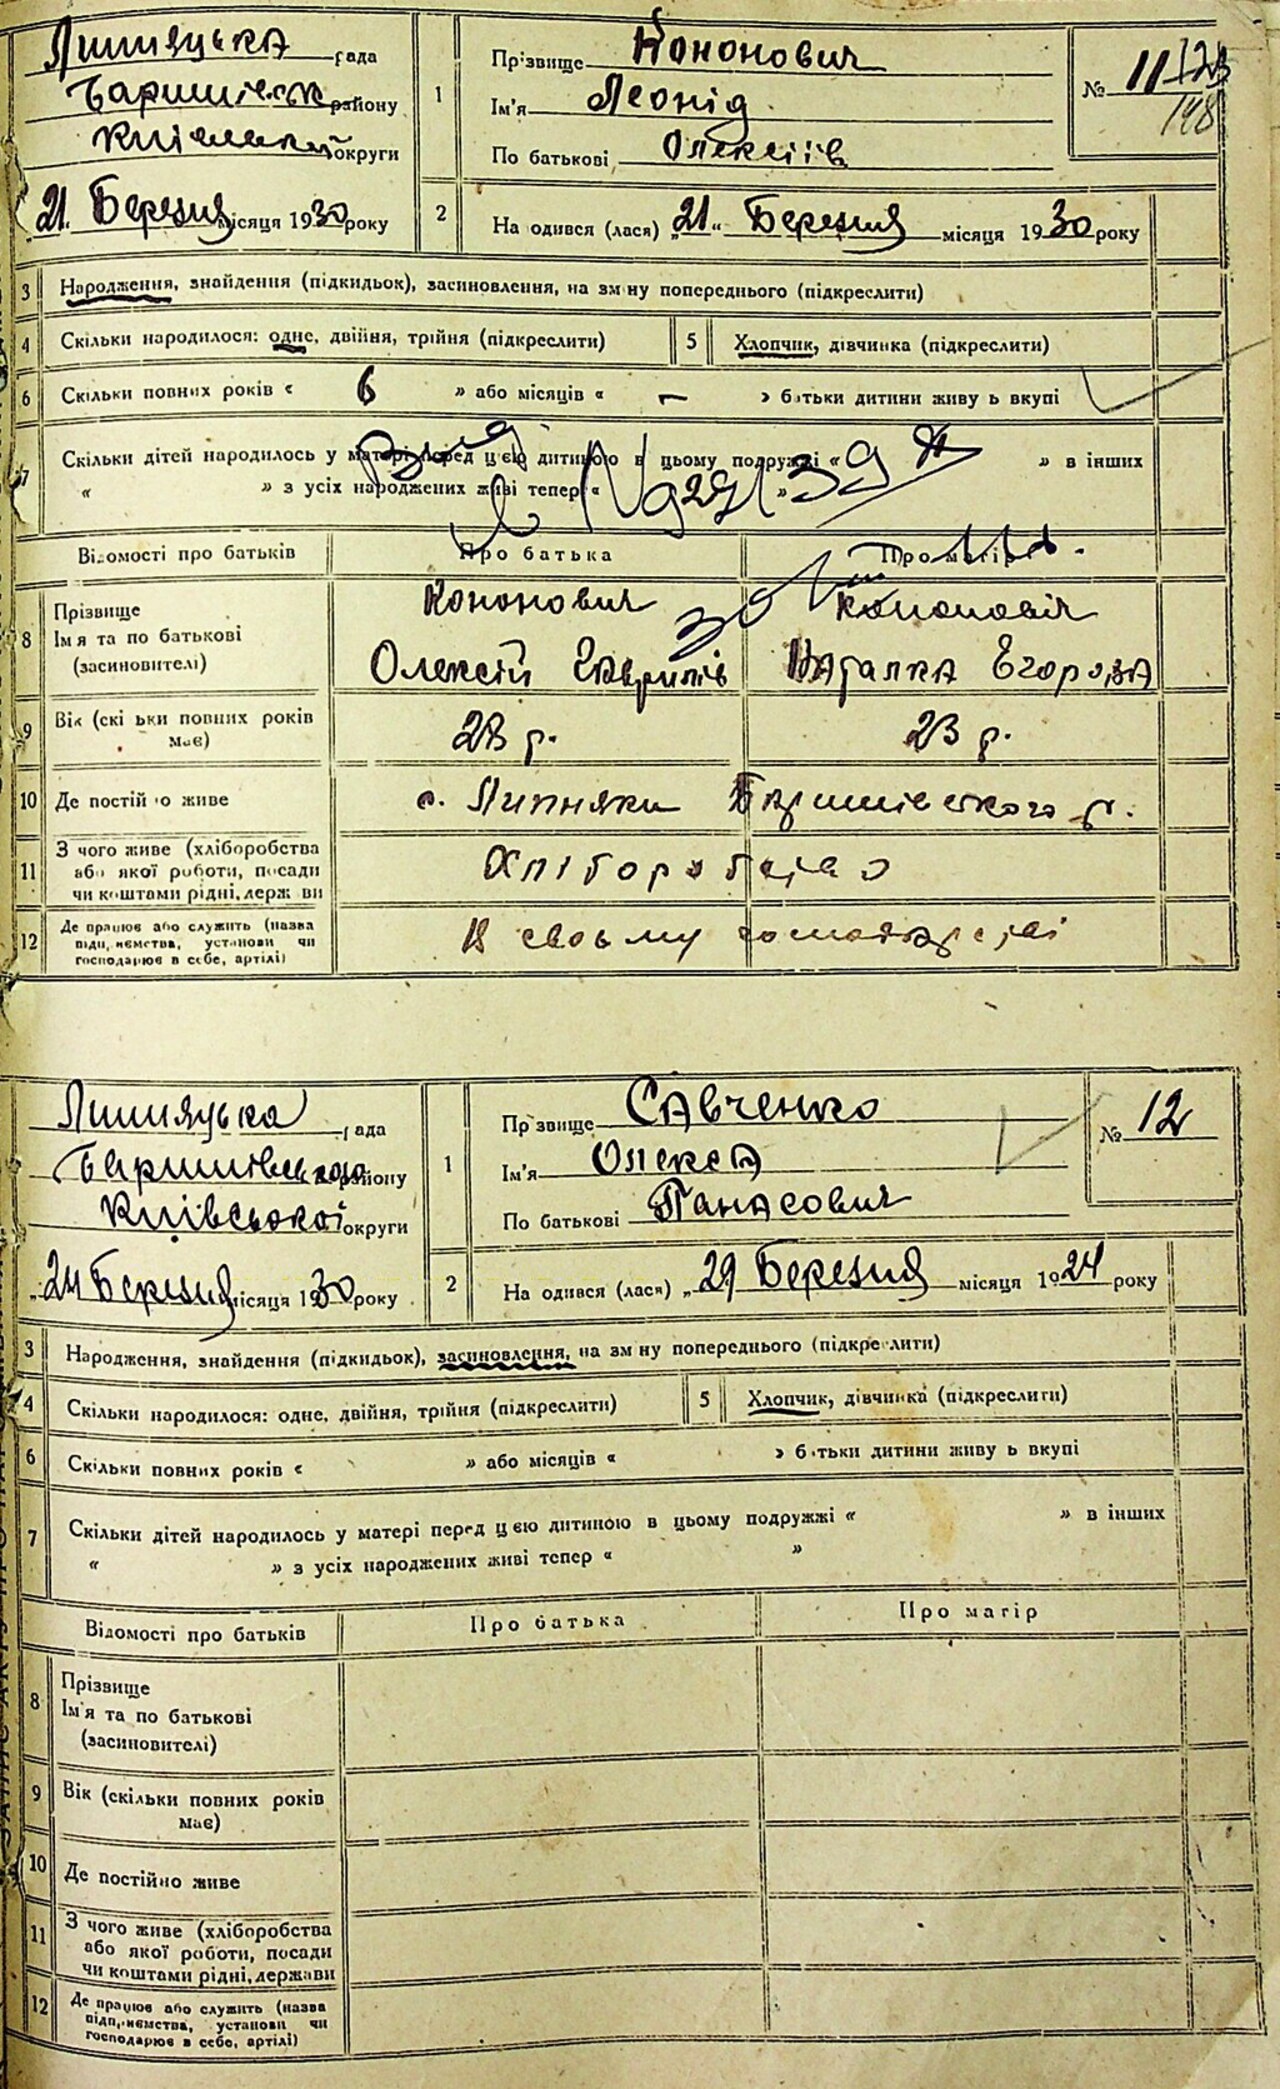 Липняцька рада
Баришівськ району
Київської округи
21 Березня місяця 1930 року
1
Прізвище Кононович
Ім'я Леонід
По батькові Олексіїв
№ 11
148
2
На одився (лася) „21“ Березня місяця 1930 року
3 Народження, знайдення (підкидьок), засиновлення, на зміну попереднього (підкреслити)
4 Скільки народилося: одне, двійня, трійня (підкреслити) 5 Хлопчик, дівчинка (підкреслити)
6 Скільки повних років « 6 » або місяців « – » батьки дитини живу ь вкупі
7 Скільки дітей народилось у матері перед цією дитиною в цьому подружжі « » в інших
« » з усіх народжених живі тепер « »
Відомості про батьків Про батька Про матір
8 Прізвище Кононович Кононовіч
Ім'я та по батькові
(засиновителі) Олексій Гаврилів Наталка Егорова
9 Вік (скі ьки повних років має) 28 р. 23 р.
10 Де постій о живе с. Липняки Баришівського р.
11 З чого живе (хліборобства
або якої роботи, посади
чи коштами рідні, держ ви Хліборобство
12 Де працює або служить (назва
підприємства, установи чи
господарює в себе, артілі) В своьму господарстві
Липняцька рада
Баришівського району
Київської округи
„24 Березня місяця 1930 року
1
Пр звище Савченко
Ім'я Олексā
По батькові Панасович
№ 12
2
На одився (лася) „29 Березня місяця 1924 року
3 Народження, знайдення (підкидьок), засиновлення, на зм ну попереднього (підкреслити)
4 Скільки народилося: одне, двійня, трійня (підкреслити) 5 Хлопчик, дівчинка (підкреслити)
6 Скільки повних років « » або місяців « » батьки дитини живу ь вкупі
7 Скільки дітей народилось у матері перед цією дитиною в цьому подружжі « » в інших
« » з усіх народжених живі тепер « »
Відомості про батьків Про батька Про матір
8 Прізвище
Ім'я та по батькові
(засиновителі)
9 Вік (скільки повних років
має)
10 Де постійно живе
11 З чого живе (хліборобства
або якої роботи, посади
чи коштами рідні, держави
12 Де працює або служить (назва
підприємства, установи чи
господарює в себе, артілі)